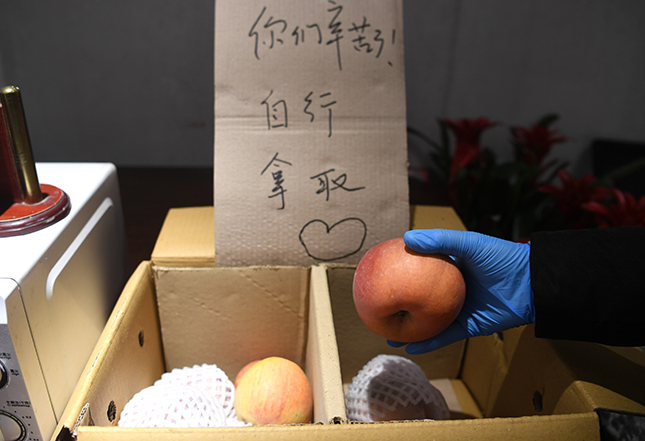 你们辛苦了!
自行
拿取